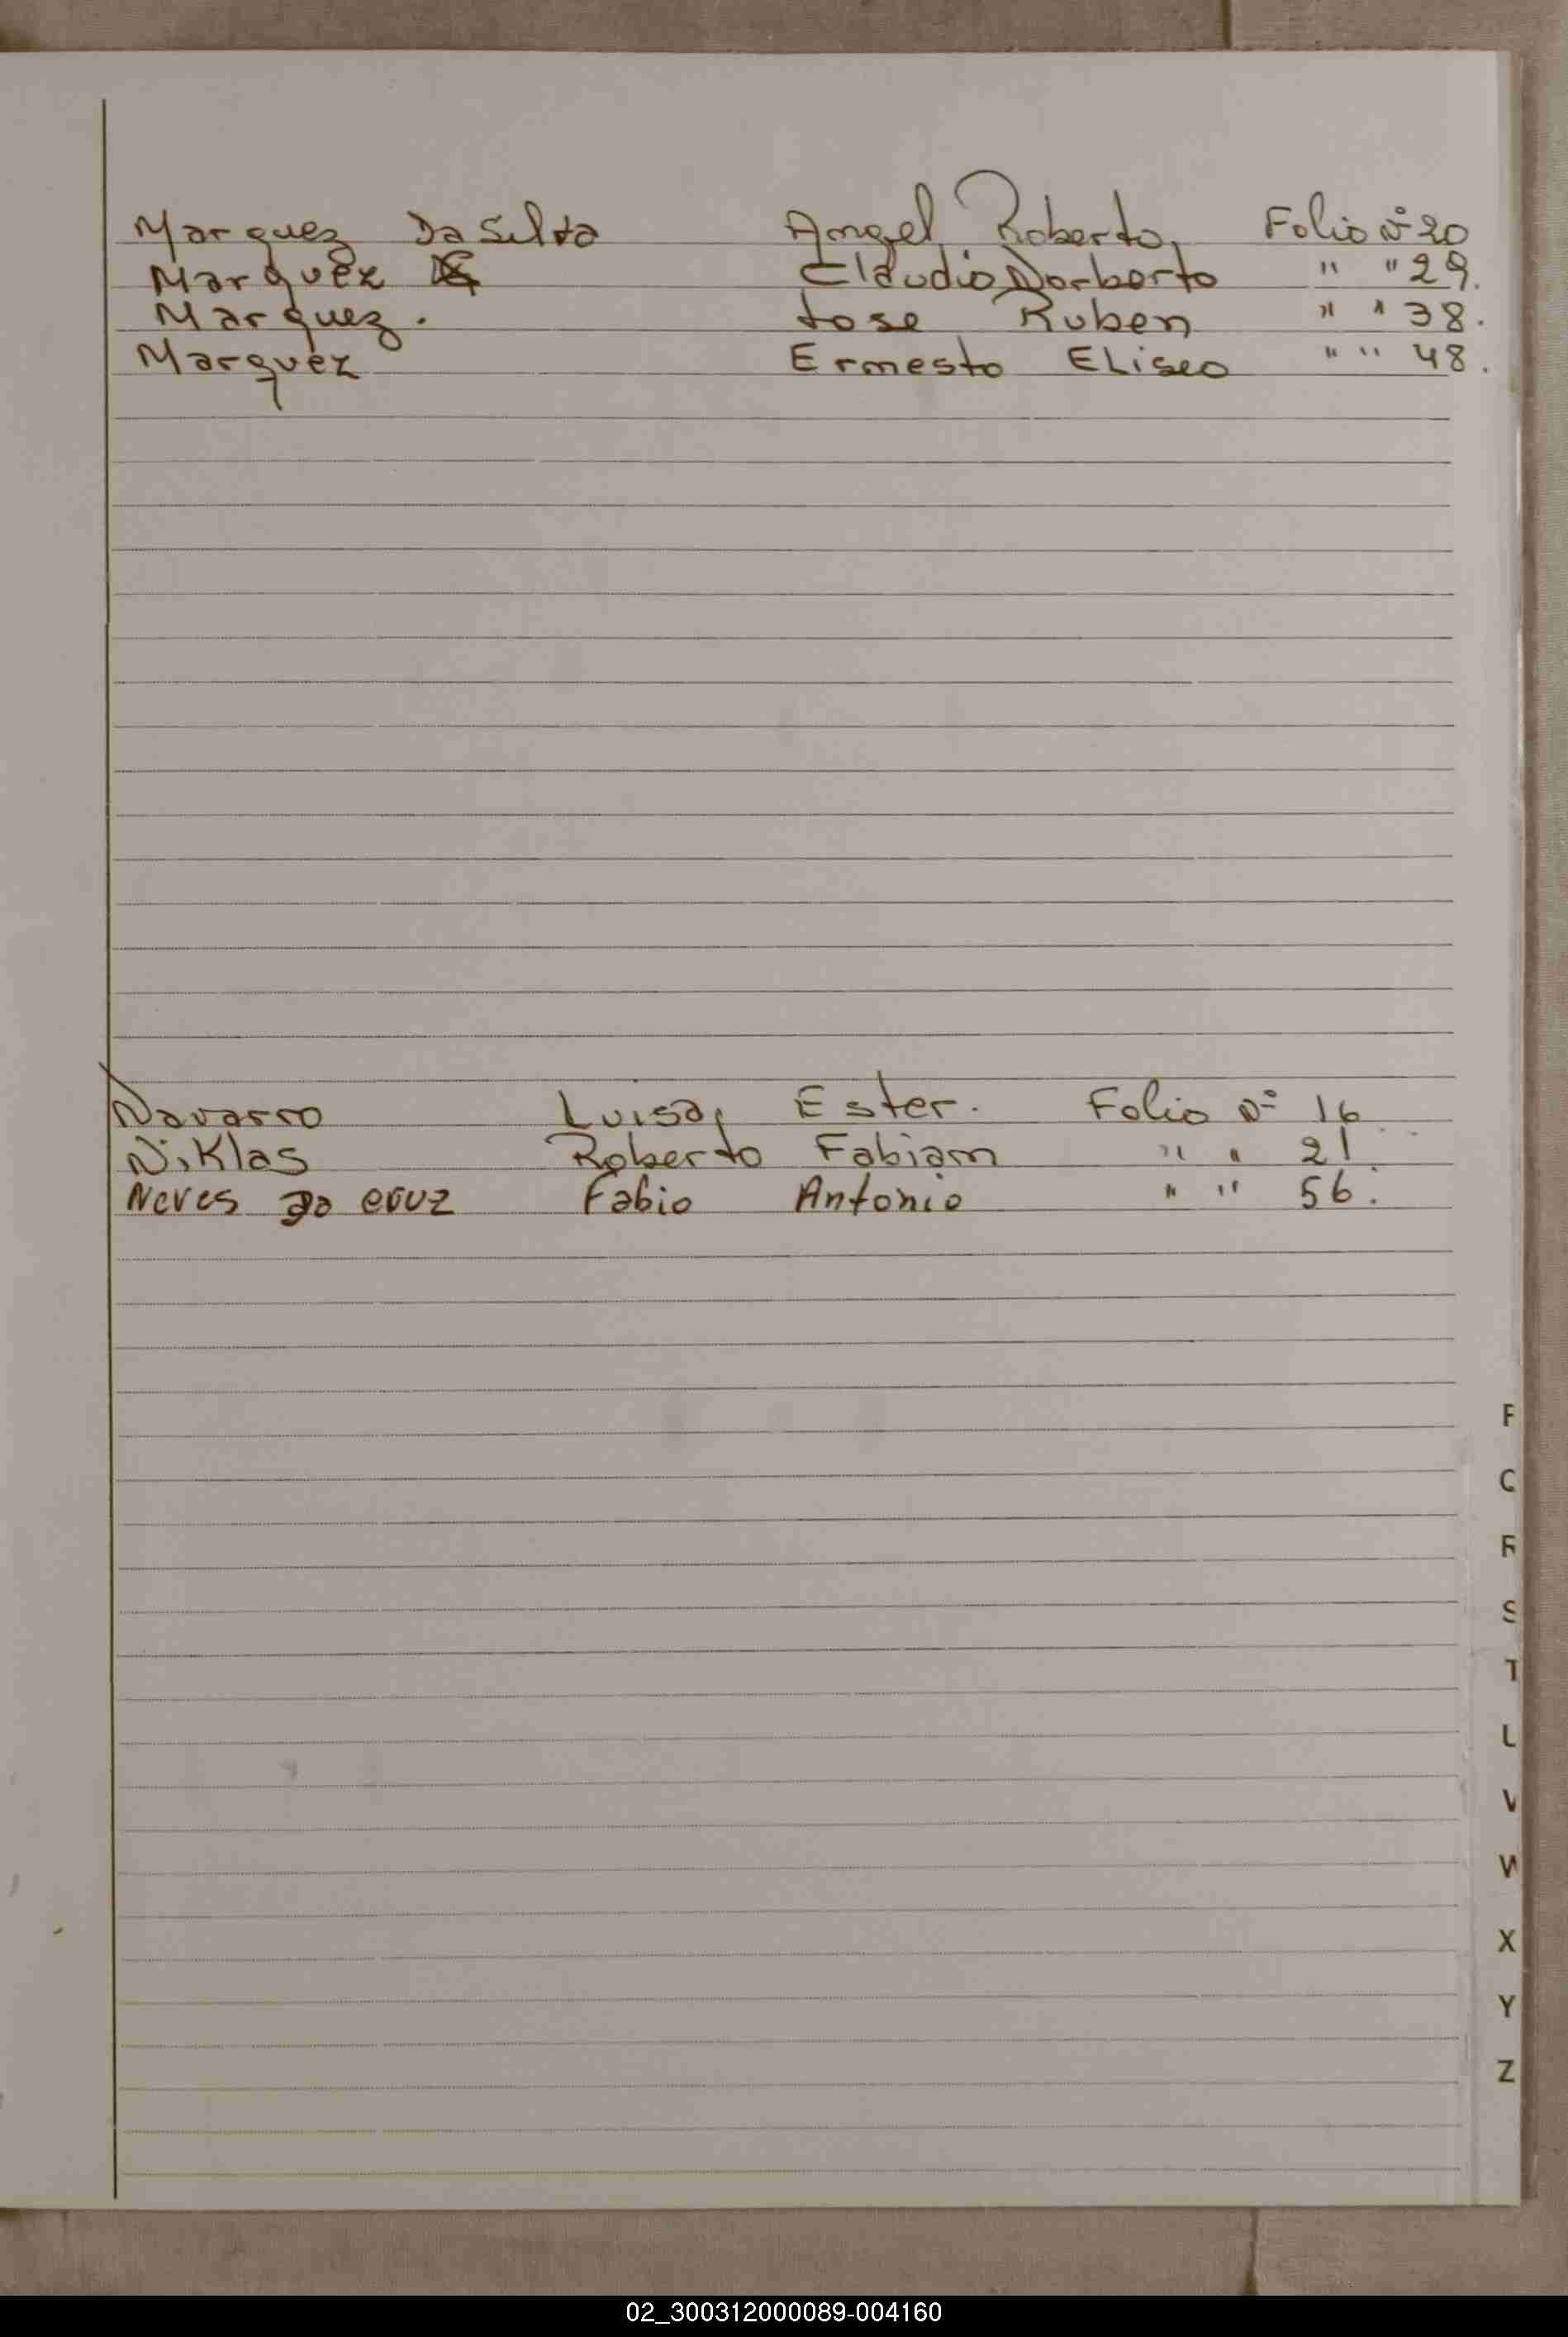 Marquez Da Silva Angel Roberto, Folio Nº 20
Marquez Claudio Norberto " " 29.
Marquez. Jose Ruben " " 38.
Marquez Ernesto ELiseo " " 48.
Navarro Luisa, Ester. Folio Nº 16
NiKlas Roberto Fabian " " 21.
Neves Da Cruz Fabio Antonio " " 56.
F
C
R
S
T
U
V
W
X
Y
Z
02_300312000089-004160